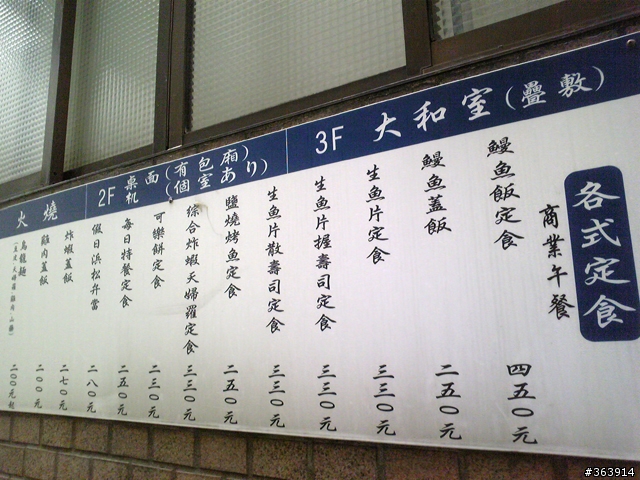 各式定食
商業午餐
3F 大和室(疊敷)
鰻魚飯定食 四五〇元
鰻魚蓋飯 二五〇元
生魚片定食 三三〇元
生魚片握壽司定食 三三〇元
生魚片散壽司定食 三三〇元
2F 桌面(有包廂)
机(個室あり)
鹽燒烤魚定食 二五〇元
綜合炸蝦天婦羅定食 三三〇元
可樂餅定食 二三〇元
每日特餐定食 二五〇元
假日浜松弁當 二八〇元
火燒
炸蝦蓋飯 二七〇元
雞肉蓋飯 二〇〇元
烏龍麵 二〇〇元起
#363914